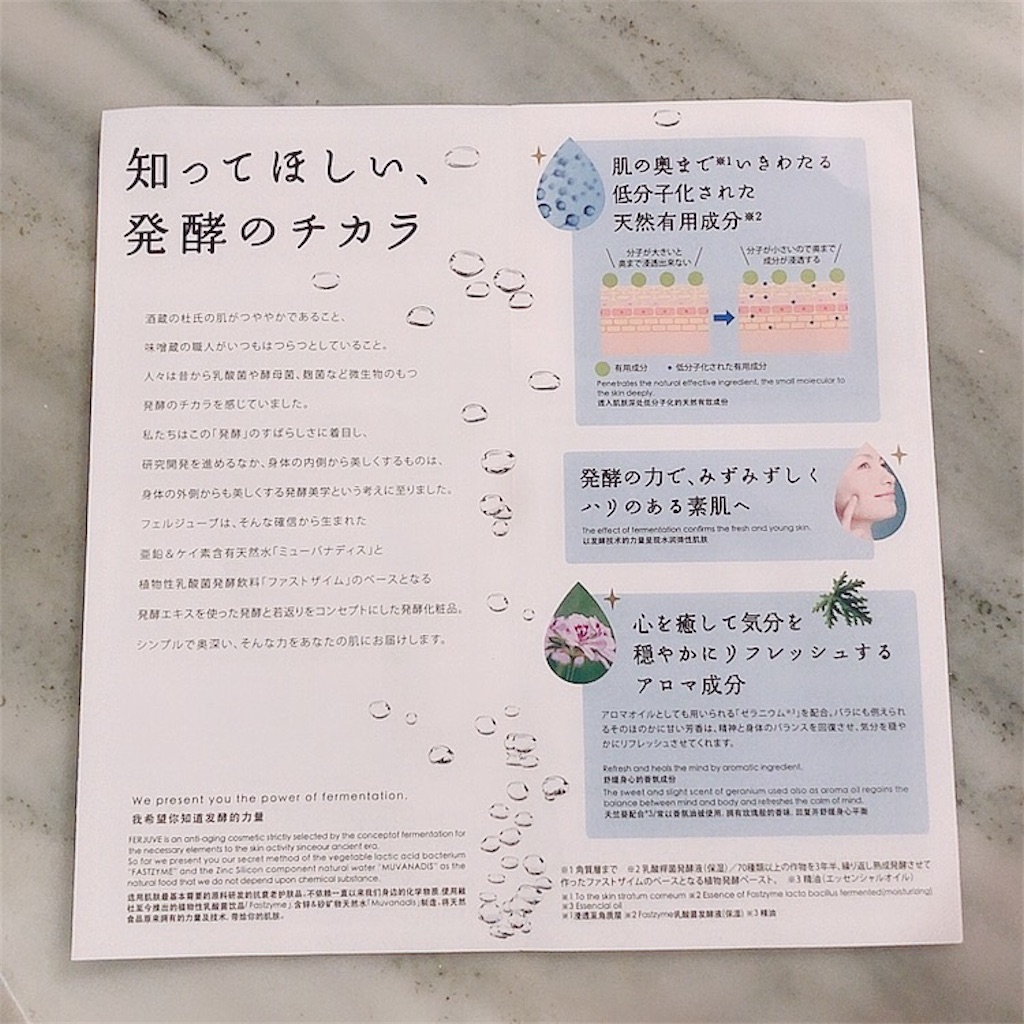 知ってほしい、
発酵のチカラ
酒蔵の杜氏の肌がつややかであること、
味噌蔵の職人がいつもはつらつとしていること。
人々は昔から乳酸菌や酵母菌、麹菌など微生物のもつ
発酵のチカラを感じていました。
私たちはこの「発酵」のすばらしさに着目し、
研究開発を進めるなか、身体の内側から美しくするものは、
身体の外側からも美しくする発酵美学という考えに至りました。
フェルジューブは、そんな確信から生まれた
亜鉛＆ケイ素含有天然水「ミューバナディス」と
植物性乳酸菌発酵飲料「ファストザイム」のベースとなる
発酵エキスを使った発酵と若返りをコンセプトにした発酵化粧品。
シンプルで奥深い、そんな力をあなたの肌にお届けします。
We present you the power of fermentation.
我希望你知道发酵的力量
FERJUVE is an anti-aging cosmetic strictly selected by the conceptof fermentation for
the necessary elements to the skin activity sinceour ancient era.
So far we present you our secret method of the vegetable lactic acid bacterium
"FASTZYME" and the Zinc Silicon component natural water "MUVANADIS" as the
natural food that we do not depend upon chemical substance.
适用肌肤最基本需要的原料研发的抗衰老护肤品，不依赖一直以来我们身边的化学物质，使用敝
社至今推出的植物性乳酸菌饮品「Fastzyme」，含锌&矽矿物天然水「Muvanadis」制造，将天然
食品原来拥有的力量及技术，带给你的肌肤。
肌の奥まで※1いきわたる
低分子化された
天然有用成分※2
分子が大きいと
奥まで浸透出来ない
分子が小さいので奥まで
成分が浸透する
有用成分 ・低分子化された有用成分
Penetrates the natural effective ingredient, the small molecular to
the skin deeply.
透入肌肤深处低分子化的天然有效成份
発酵の力で、みずみずしく
ハリのある素肌へ
The effect of fermentation confirms the fresh and young skin.
以发酵技术的力量呈现水润弹性肌肤
心を癒して気分を
穏やかにリフレッシュする
アロマ成分
アロマオイルとしても用いられる「ゼラニウム※3」を配合。バラにも例えられ
るそのほのかに甘い芳香は、精神と身体のバランスを回復させ、気分を穏や
かにリフレッシュさせてくれます。
Refresh and heals the mind by aromatic ingredient.
舒缓身心的香氛成份
The sweet and slight scent of geranium used also as aroma oil regains the
balance between mind and body and refreshes the calm of mind.
天竺葵配合*3/常以香氛油被使用，拥有玫瑰般的香味，回复并舒缓身心平衡
※1 角質層まで ※2 乳酸桿菌発酵液（保湿）／70種類以上の作物を3年半、繰り返し熟成発酵させて
作ったファストザイムのベースとなる植物発酵ペースト、 ※3 精油（エッセンシャルオイル）
※1 To the skin stratum corneum ※2 Essence of Fastzyme lacto bacillus fermented(moisturizing)
※3 Essencial oil
※1浸透至角质层 ※2 Fastzyme乳酸菌发酵液(保湿) ※3 精油